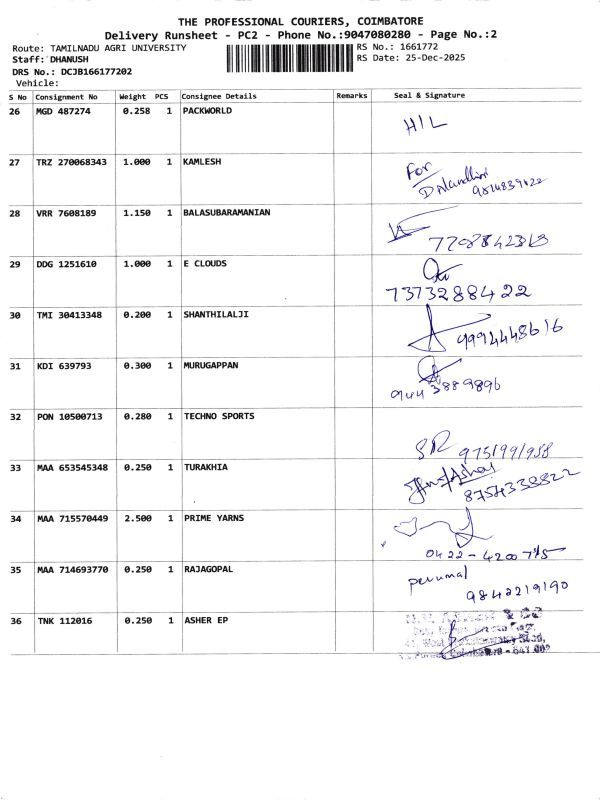 THE PROFESSIONAL COURIERS, COIMBATORE
Delivery Runsheet - PC2 - Phone No.:9047080280 - Page No.:2
Route: TAMILNADU AGRI UNIVERSITY
RS No.: 1661772
Staff: DHANUSH
RS Date: 25-Dec-2025
DRS No.: DCJB166177202
Vehicle:
S No Consignment No Weight PCS Consignee Details Remarks Seal & Signature
26 MGD 487274 0.258 1 PACKWORLD
H/L
27 TRZ 270068343 1.000 1 KAMLESH
For
28 VRR 7608189 1.150 1 BALASUBARAMANIAN
29 DDG 1251610 1.000 1 E CLOUDS
7373288422
30 TMI 30413348 0.200 1 SHANTHILALJI
9994448616
31 KDI 639793 0.300 1 MURUGAPPAN
9443889896
32 PON 10500713 0.280 1 TECHNO SPORTS
33 MAA 653545348 0.250 1 TURAKHIA
8754338822
34 MAA 715570449 2.500 1 PRIME YARNS
35 MAA 714693770 0.250 1 RAJAGOPAL
perumal
9842219190
36 TNK 112016 0.250 1 ASHER EP